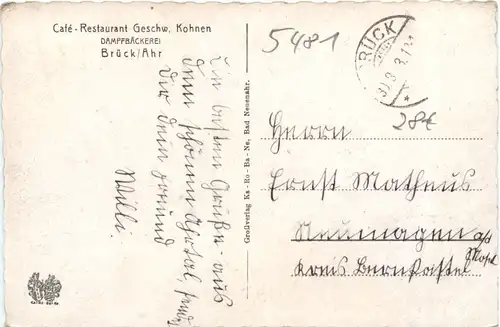 Café-Restaurant Geschw. Kohnen
DAMPFBÄCKEREI
Brück/Ahr
5481
BRÜCK
28€
Die besten Grüße aus
dem schönen Ahrtal, sendet
Dir dein Freund
Willi.
Großverlag Ka-Ro-Ba-Ne, Bad Neuenahr.
Herrn
Ernst Matheus
Neumagen a/d
Mosel
Kreis Bernkastel